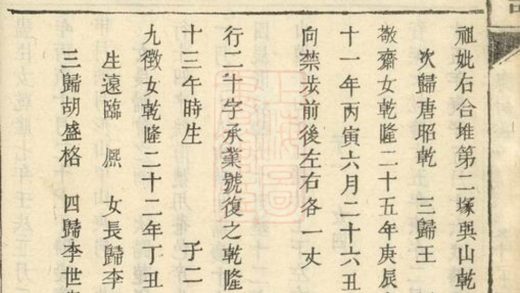 祖妣右合堆第二塚巽山乾
次歸唐昭乾 三歸王
敬齋女乾隆二十五年庚辰
十一年丙寅六月二十六丑
向禁步前後左右各一丈
行二十字承業號復之乾隆
十三午時生 子二
九徵女乾隆二十二年丁丑
生遠臨 熈 女長歸李
三歸胡盛格 四歸李世